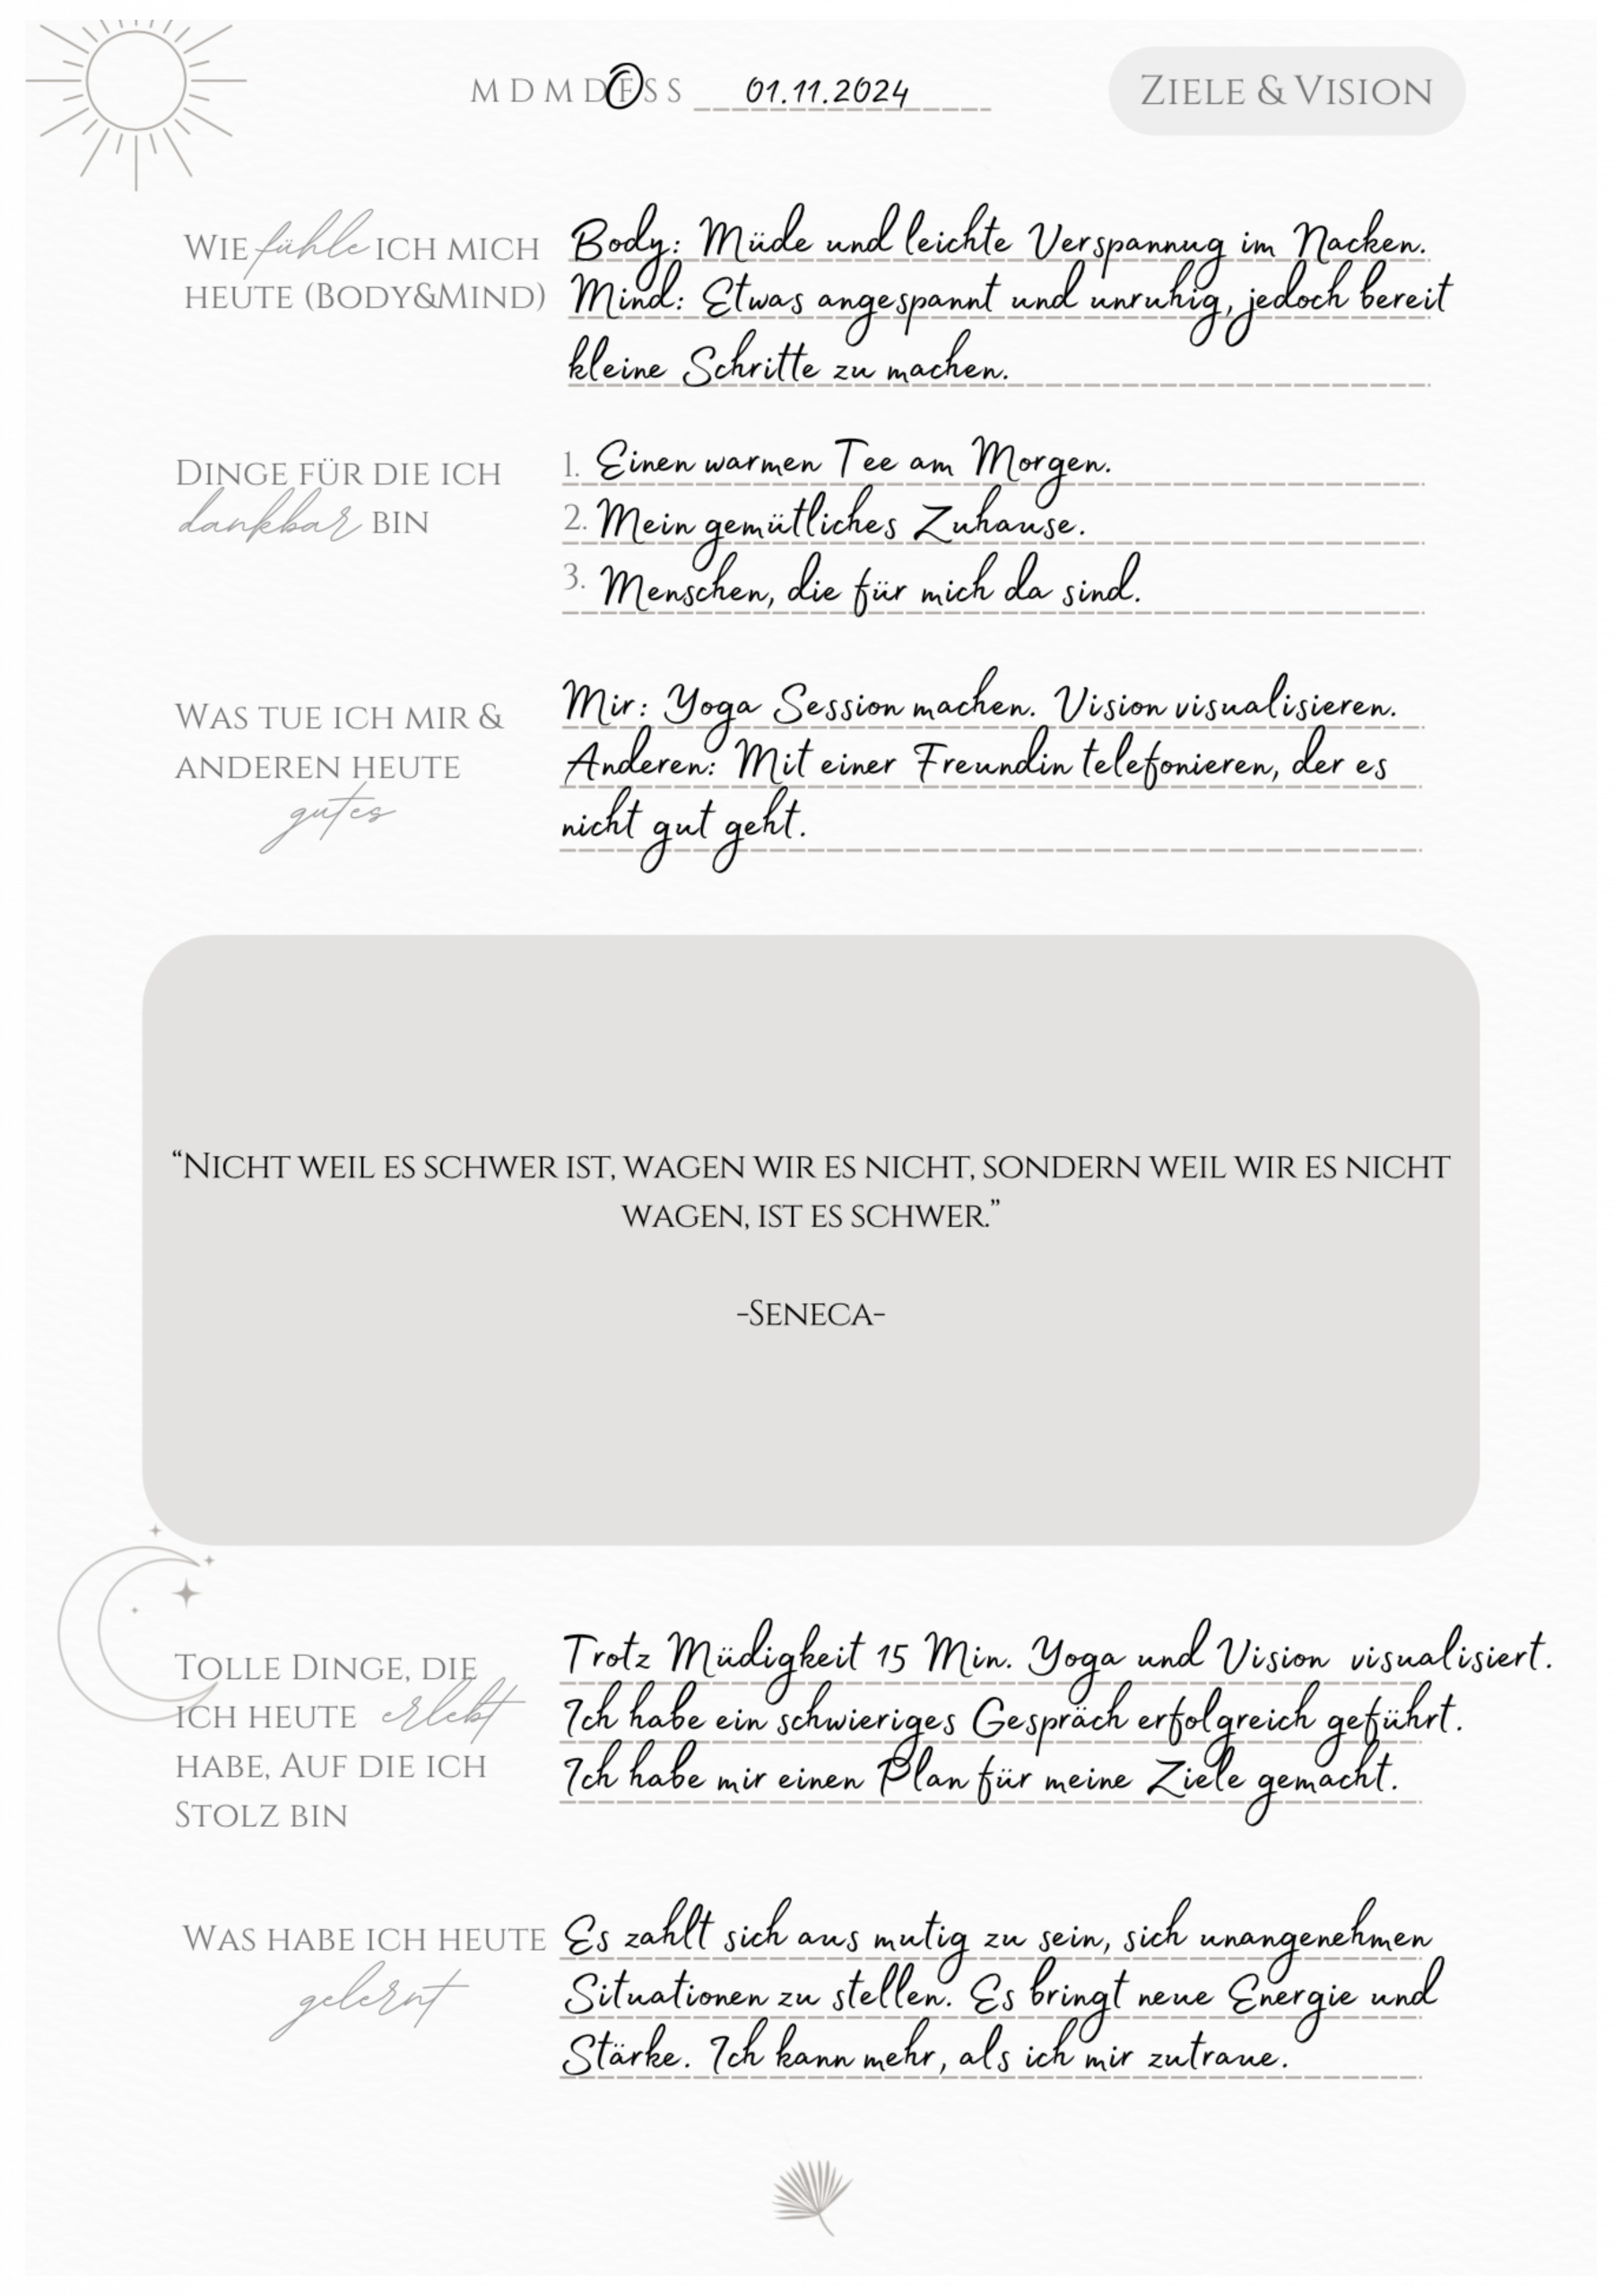 M D M D F S S 01.11.2024 ZIELE & VISION
WIE fühle ICH MICH HEUTE (BODY&MIND)
Body: Müde und leichte Verspannug im Nacken.
Mind: Etwas angespannt und unruhig, jedoch bereit
kleine Schritte zu machen.
DINGE FÜR DIE ICH
dankbar BIN
1. Einen warmen Tee am Morgen.
2. Mein gemütliches Zuhause.
3. Menschen, die für mich da sind.
WAS TUE ICH MIR &
ANDEREN HEUTE
gutes
Mir: Yoga Session machen. Vision visualisieren.
Anderen: Mit einer Freundin telefonieren, der es
nicht gut geht.
“NICHT WEIL ES SCHWER IST, WAGEN WIR ES NICHT, SONDERN WEIL WIR ES NICHT
WAGEN, IST ES SCHWER.”
-SENECA-
TOLLE DINGE, DIE
ICH HEUTE erlebt
HABE, AUF DIE ICH
STOLZ BIN
Trotz Müdigkeit 15 Min. Yoga und Vision visualisiert.
Ich habe ein schwieriges Gespräch erfolgreich geführt.
Ich habe mir einen Plan für meine Ziele gemacht.
WAS HABE ICH HEUTE
gelernt
Es zahlt sich aus mutig zu sein, sich unangenehmen
Situationen zu stellen. Es bringt neue Energie und
Stärke. Ich kann mehr, als ich mir zutraue.